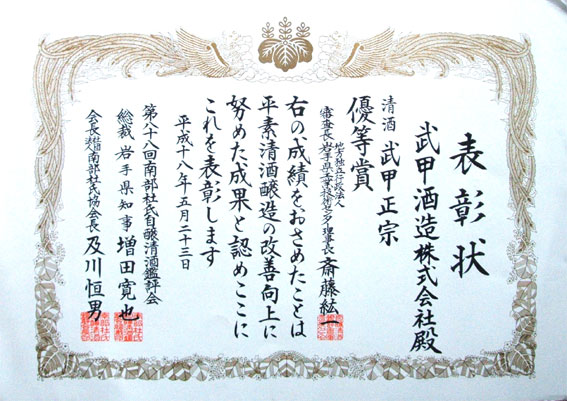 表彰状
武甲酒造株式会社殿
清酒 武甲正宗
優等賞
地方独立行政法人
審査長 岩手県工業技術センター理事長 斎藤紘一
右の成績をおさめたことは
平素清酒醸造の改善向上に
努めた成果と認めここに
これを表彰します
平成十八年五月二十三日
第八十八回南部杜氏自醸清酒鑑評会
総裁 岩手県知事 増田寛也
会長 社団法人 南部杜氏協会長 及川恒男